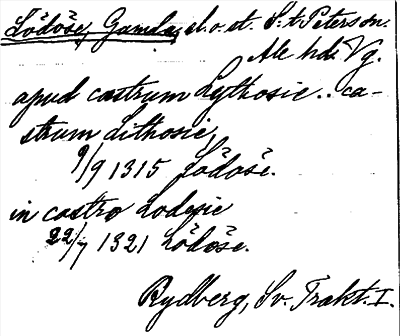 Lödöse, Gamla, sl. o. st. S:t Peters sn.
Ale hd. Vg.
apud castrum Lythosie .. ca-
strum Lithosie,
9/9 1315 Lödöse.
in castro Lodosie
22/7 1321 Lödöse.
Rydberg, Sv. Trakt. I.